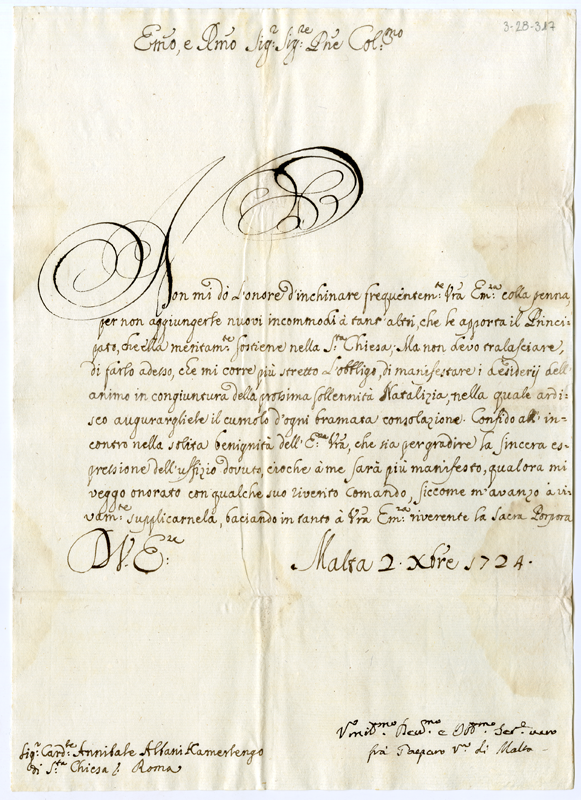 3-28-317
Emo, e Rmo Sigr Sigre Pne Colmo
Non mi dò l'onore d'inchinare frequentemte Vra Emza colla penna
per non aggiungerle nuovi incommodi à tant'altri, che le apporta il Princi-
pato, che ella meritamte sostiene nella Sta Chiesa; Ma non devo tralasciare,
di farlo adesso, che mi corre più stretto l'obbligo, di manifestare i desiderij dell'
animo in congiuntura della prossima sollennità Natalizia, nella quale ardi-
sco augurargliele il cumolo d'ogni bramata consolazione. Confido all'in-
contro nella solita benignità dell'Emza Vra, che sia per gradire la sincera es-
pressione dell'uffizio dovuto, cioche à me sarà più manifesto, qualora mi
veggo onorato con qualche suo riverito Comando, siccome m'avanzo à vi-
vamte supplicarnela, baciando in tanto à Vra Emza riverente la Sacra Porpora
D. V. Eze Malta 2. Xbre 1724.
Vmilmo Devmo e Obbmo Serre vero
frà Gasparo Vo di Malta
Sigr Cardle Annibale Albani Kamerlengo
di Sta Chiesa Roma